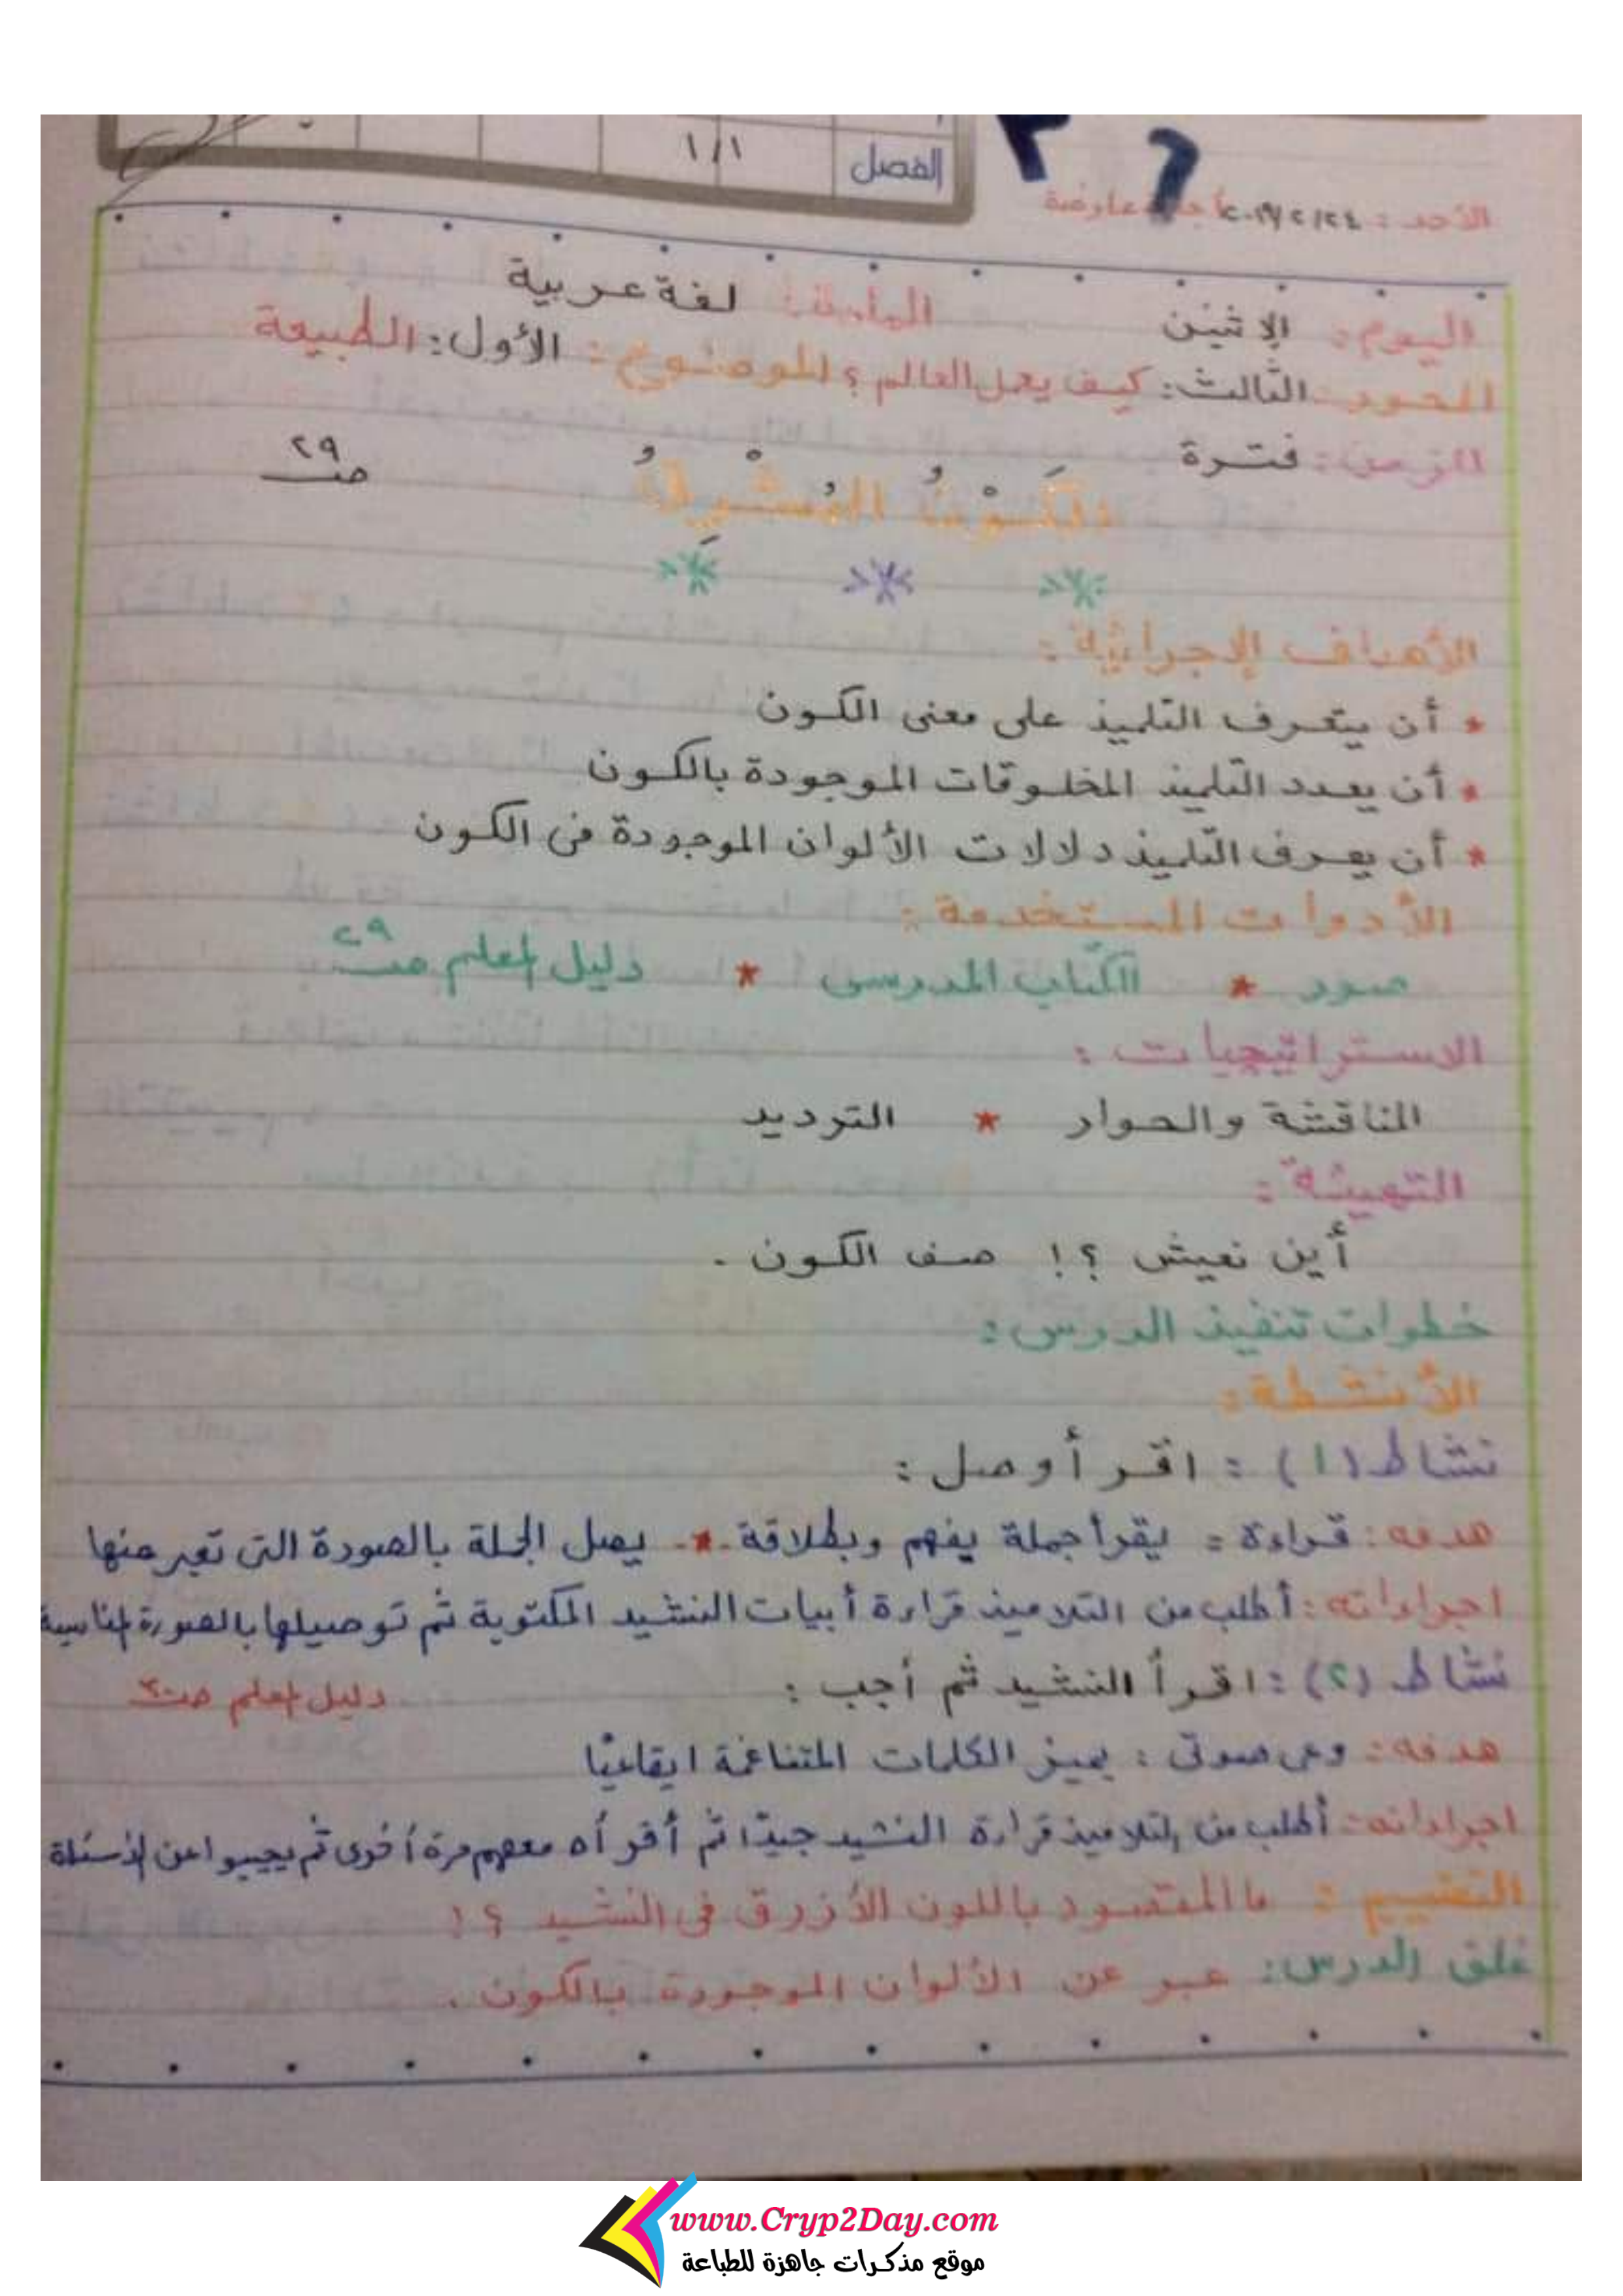 الفصل ١/١
الأحد : ٢٠١٩/٢/٢٤ أجازة عارضة
اليوم : الإثنين المادة : لغة عربية
المحور : الثالث : كيف يعمل العالم ؟ الموضوع : الأول : الطبيعة
الزمن : فترة
الْكَوْنُ الْمُشْرِقُ صـ ٢٩
الأهداف الإجرائية :
* أن يتعرف التلميذ على معنى الكون
* أن يعدد التلميذ المخلوقات الموجودة بالكون
* أن يعرف التلميذ دلالات الألوان الموجودة فى الكون
الأدوات المستخدمة :
صور * الكتاب المدرسى * دليل المعلم صـ ٢٩
الاستراتيجيات :
المناقشة والحوار * الترديد
التهيئة :
أين نعيش ؟! صف الكون .
خطوات تنفيذ الدرس :
الأنشطة :
نشاط (١) : اقرأ وصل :
هدفه : قراءة : يقرأ جملة يفهم وبطلاقة - * - يصل الجملة بالصورة التى تعبر عنها
اجراءاته : أطلب من التلاميذ قراءة أبيات النشيد المكتوبة ثم توصيلها بالصورة المناسبة
نشاط (٢) : اقرأ النشيد ثم أجب : دليل المعلم صـ ٣٠
هدفه : وعى صوتى : يميز الكلمات المتناغمة ايقاعيًا
اجراءاته : أطلب من التلاميذ قراءة النشيد جيدًا ثم أقرأه معهم مرة أخرى ثم يجيبوا عن الأسئلة
التقييم : ما المقصود باللون الأزرق فى النشيد ؟!
غلق الدرس : عبر عن الألوان الموجودة بالكون .
www.Cryp2Day.com
موقع مذكرات جاهزة للطباعة